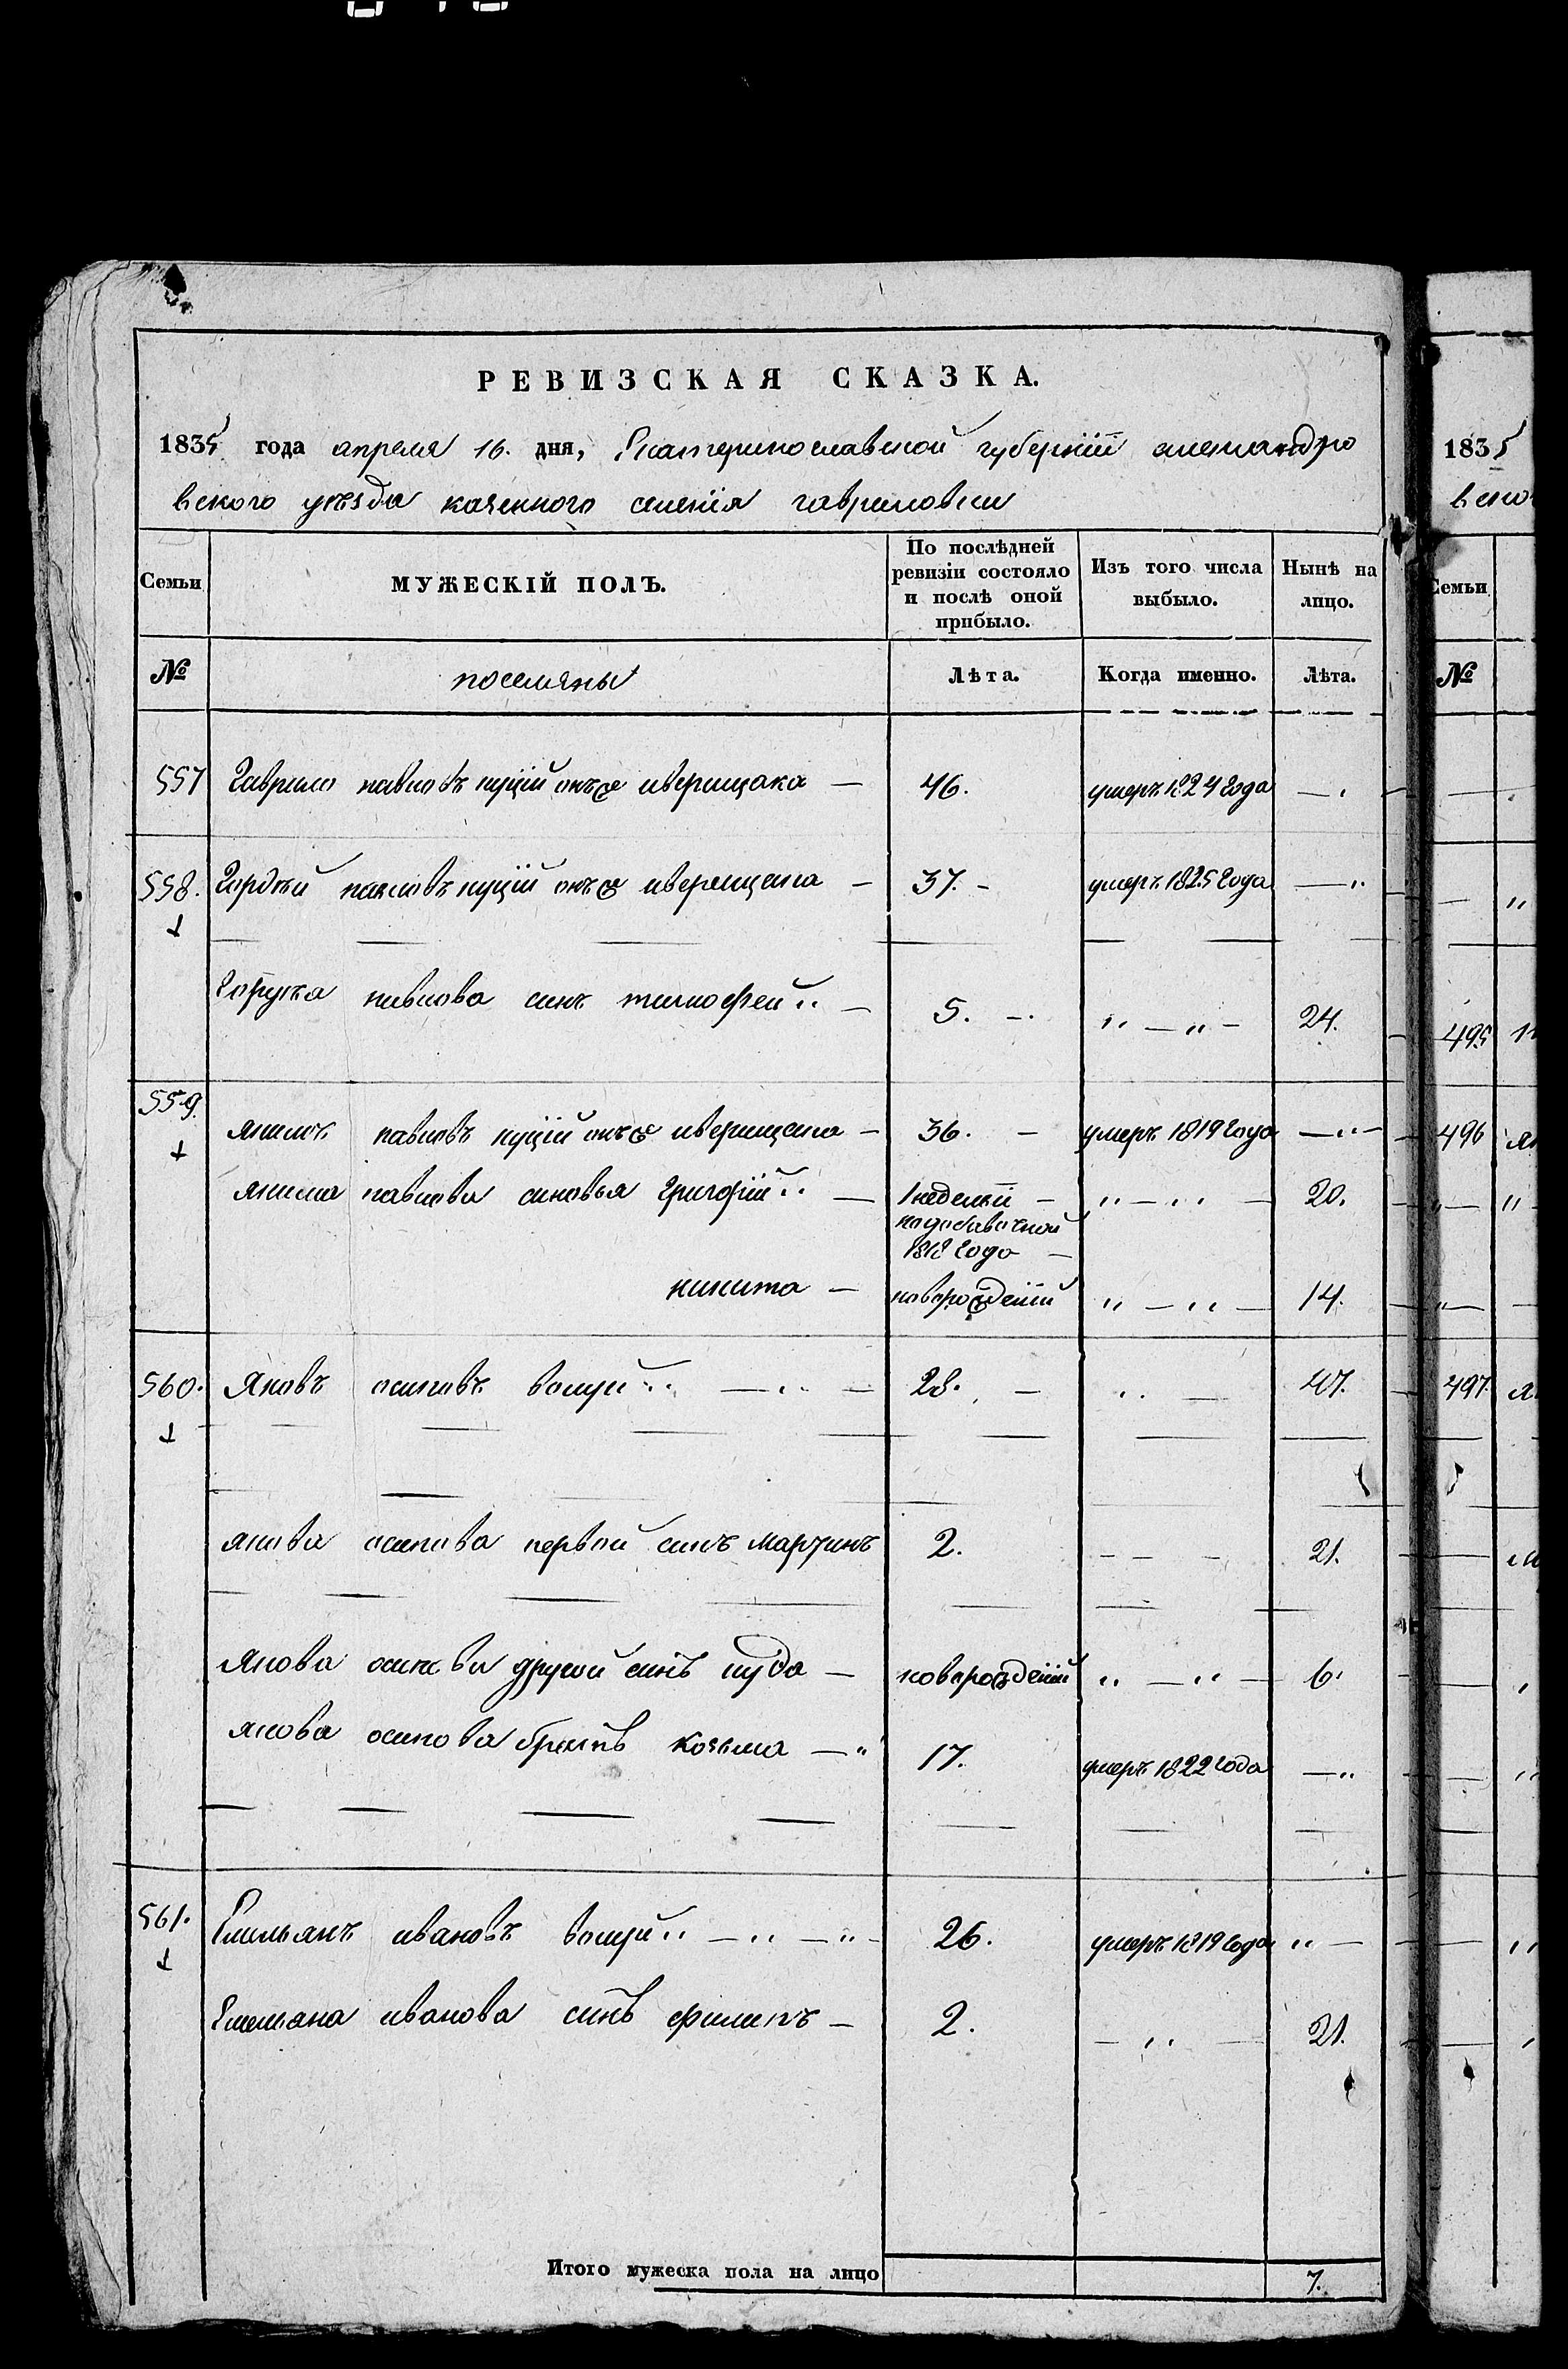 РЕВИЗСКАЯ СКАЗКА.
1835 года апреля 16. дня, Екатеринославской губернiи александро
вского уѣзда казенного селенiя гавриловки
Семьи
МУЖЕСКІЙ ПОЛЪ.
По послѣдней ревизіи состояло и послѣ оной прибыло.
Изъ того числа выбыло.
Нынѣ на лицо.
№ поселяны Лѣта. Когда именно. Лѣта.
557 Гаврило павловъ куцiй онъже 46. умеръ 1824 года
558. Гордѣй павловъ куцiй онъже 37. умеръ 1825 года
павлова синъ тимофей 5. 24.
559. павловъ куцiй онъже 36. умеръ 1819 года
павлова синовья Григорiй 1 недели 20.
1818 года
никита новорожденiй 14.
560. Яковъ осиповъ 28. 47.
якова осипова первой синъ мартинъ 2. 21.
якова осипова другой синъ новорожденiй 6.
якова осипова братъ козьма 17. умеръ 1822 года
561. Емельянъ ивановъ 26. умеръ 1819 года
Емельяна иванова синъ филипъ 2. 21.
Итого мужеска пола на лицо 7.
1835
вско
Семьи
№
495
496
497